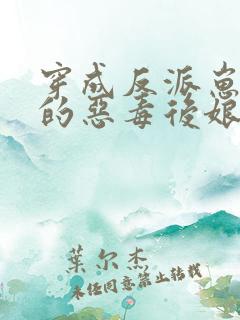 穿成反派崽
的惡毒後娘
葉尔杰
未经同意禁止转载